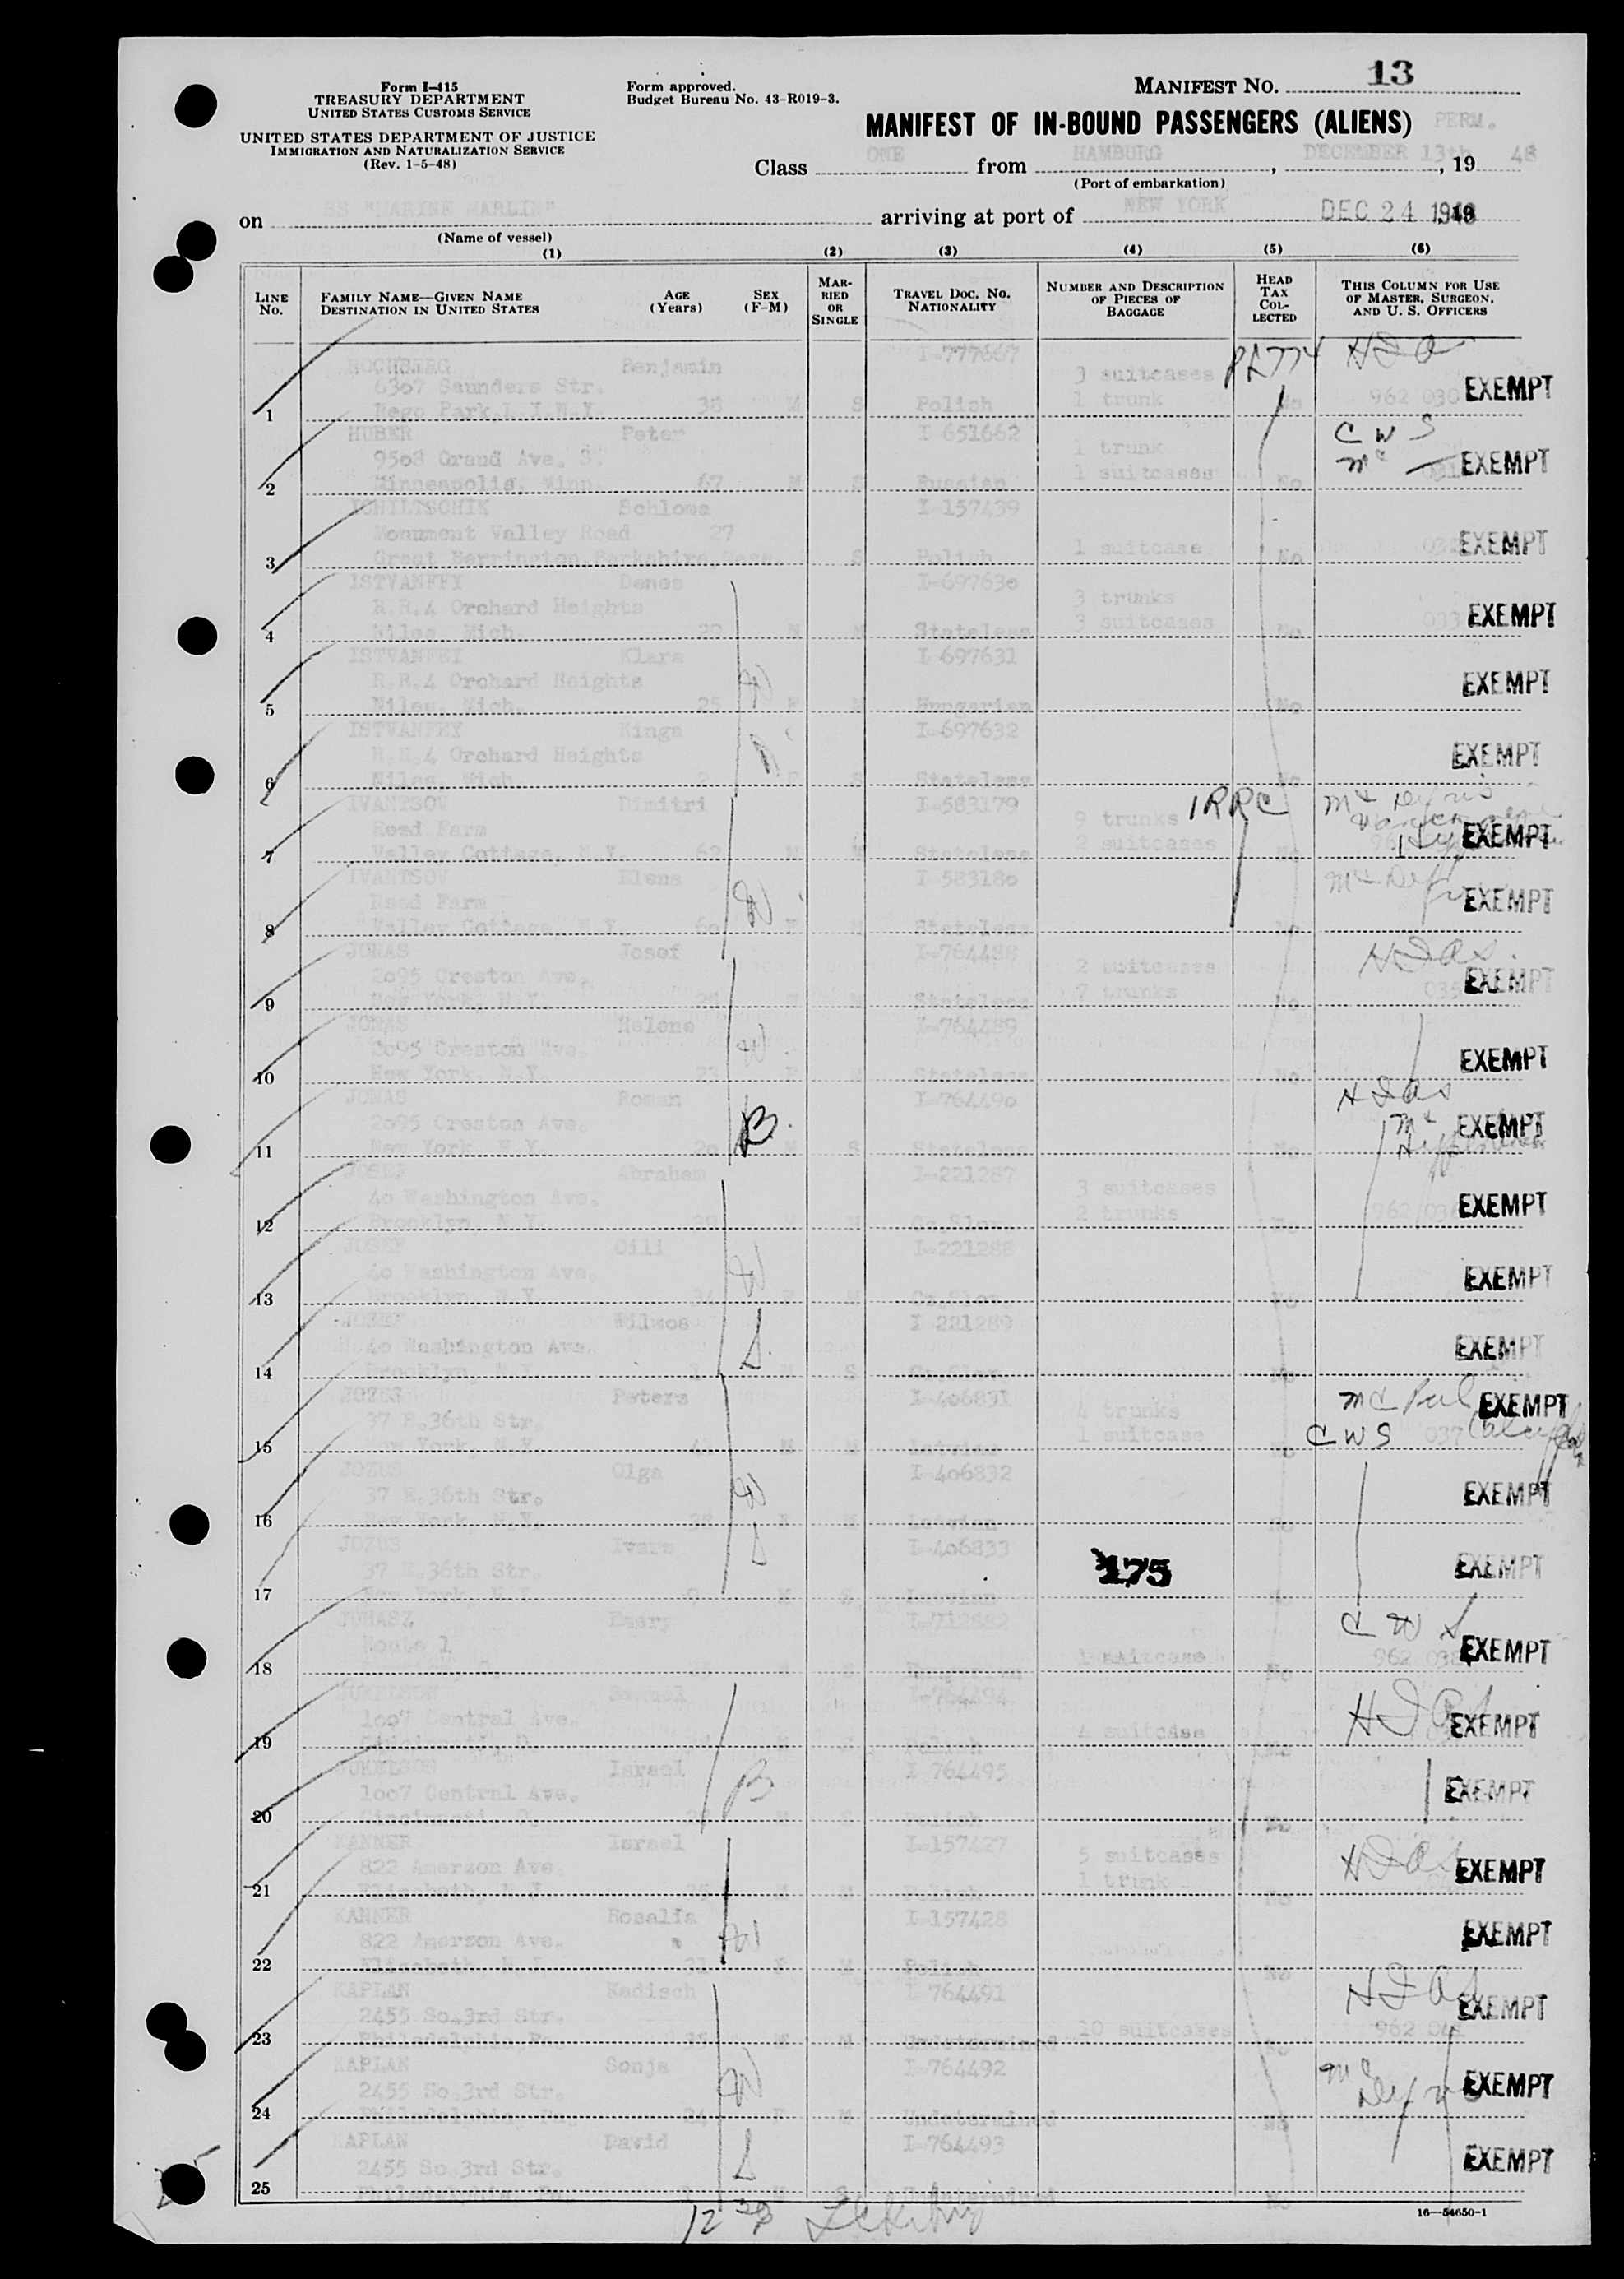 Form I-415
TREASURY DEPARTMENT
UNITED STATES CUSTOMS SERVICE
UNITED STATES DEPARTMENT OF JUSTICE
IMMIGRATION AND NATURALIZATION SERVICE
(Rev. 1-5-48)
Form approved.
Budget Bureau No. 43-R019-3.
MANIFEST NO. 13
MANIFEST OF IN-BOUND PASSENGERS (ALIENS) PERM.
Class ONE from HAMBURG, DECEMBER 13th, 19 48
(Port of embarkation)
on SS "MARINE MARLIN" arriving at port of NEW YORK DEC 24 1948
(Name of vessel)
(1) (2) (3) (4) (5) (6)
LINE NO. FAMILY NAME—GIVEN NAME DESTINATION IN UNITED STATES AGE (Years) SEX (F-M) MARRIED OR SINGLE TRAVEL DOC. NO. NATIONALITY NUMBER AND DESCRIPTION OF PIECES OF BAGGAGE HEAD TAX COLLECTED THIS COLUMN FOR USE OF MASTER, SURGEON, AND U. S. OFFICERS
HOCHBERG Benjamin I-777667
6307 Saunders Str. 3 suitcases
1 Rego Park, L.I.N.Y. 38 M S Polish 1 trunk No 962 030 EXEMPT
HUBER Peter I 651662 C W S
9508 Grand Ave. S. 1 trunk
2 Minneapolis, Minn. 67 M S Russian 1 suitcases No EXEMPT
Schloma I 157439
Monument Valley Road 27
3 Great Berrington, Berkshire, Mass. S Polish 1 suitcase No EXEMPT
ISTVANFFY Denes I-697630
R.R.4 Orchard Heights 3 trunks
4 Niles, Mich. 29 M M Stateless 3 suitcases No 033 EXEMPT
ISTVANFFY Klara I 697631
R.R.4 Orchard Heights
5 Niles, Mich. 25 F M Hungarian No EXEMPT
ISTVANFFY Kinga I-697632
R.R.4 Orchard Heights
6 Niles, Mich. 2 F S Stateless No EXEMPT
IVANTSOV Dimitri I-583179 IRRC
Reed Farm 9 trunks
7 Valley Cottage, N.Y. 62 M M Stateless 2 suitcases No EXEMPT
IVANTSOV Elena I 583180
Reed Farm
8 Valley Cottage, N.Y. 60 F M Stateless No EXEMPT
JONAS Josef I-764488 HIAS
2095 Creston Ave. 2 suitcases
9 New York, N.Y. M Stateless 7 trunks No 035 EXEMPT
JONAS Helene I-764489
2095 Creston Ave.
10 New York, N.Y. 23 F M Stateless No EXEMPT
JONAS Roman I-764490 HIAS
2095 Creston Ave.
11 New York, N.Y. 20 M S Stateless No EXEMPT
JOSEF Abraham I-221287
40 Washington Ave. 3 suitcases
12 Brooklyn, N.Y. M Cz.Slov. 2 trunks No 962 036 EXEMPT
JOSEF Cili I-221288
40 Washington Ave.
13 Brooklyn, N.Y. F M Cz.Slov. No EXEMPT
JOSEF Wilmos I 221289
40 Washington Ave.
14 Brooklyn, N.Y. 1 M S Cz.Slov. No EXEMPT
JOZUS Peters I-406831
37 E.36th Str. 4 trunks
15 New York, N.Y. M M Latvian 1 suitcase No C W S 037 EXEMPT
JOZUS Olga I 406832
37 E.36th Str.
16 New York, N.Y. 38 F M Latvian No EXEMPT
JOZUS Ivars I 406833
37 E.36th Str. 175
17 New York, N.Y. 9 M S Latvian No EXEMPT
JUHASZ I-712882 C W S
Route 1
18 S Hungarian 1 suitcase No 962 038 EXEMPT
JUKELSON Samuel I-764494 HIAS
1007 Central Ave.
19 Cincinnati, O. M S Polish 4 suitcase No EXEMPT
JUKELSON Israel I 764495
1007 Central Ave.
20 Cincinnati, O. M S Polish No EXEMPT
KANNER Israel I-157427 HIAS
822 Amerzon Ave. 5 suitcases
21 Elizabeth, N.J. 25 M M Polish 1 trunk No EXEMPT
KANNER Rosalia I 157428
822 Amerzon Ave.
22 Elizabeth, N.J. 21 F M Polish No EXEMPT
KAPLAN Kadisch I 764491 HIAS
2455 So.3rd Str.
23 Philadelphia, Pa. 35 M M Undetermined 10 suitcases No 962 041 EXEMPT
KAPLAN Sonja I-764492
2455 So.3rd Str.
24 Philadelphia, Pa. 24 F M Undetermined No EXEMPT
KAPLAN David I-764493
2455 So.3rd Str.
25 Philadelphia, Pa. 1 M S Undetermined No EXEMPT
16—54650-1